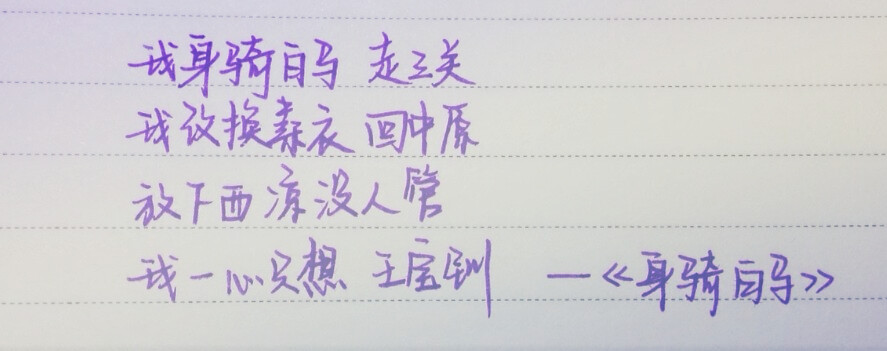 我身骑白马 走三关
我改换素衣 回中原
放下西凉没人管
我一心只想 王宝钏 —《身骑白马》